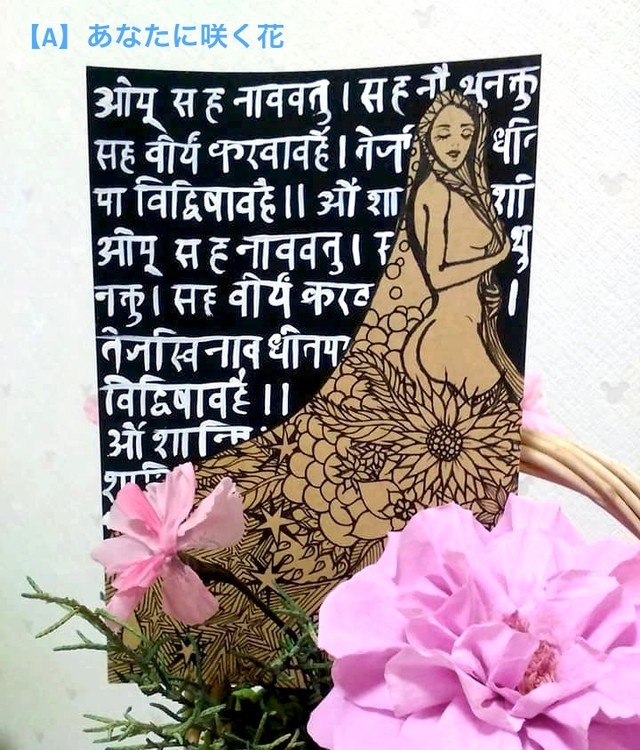 【A】あなたに咲く花
ओम् सह नाववतु । सह नौ भुनक्तु
सह वीर्यं करवावहै । तेज धीत
पा विद्विषावहै ।। ओं शा शा
ओम् सह नाववतु । स भु
नक्तु । सह वीर्यं करव ।
तेजस्विनाव धीतमा
विद्विषावहै ।।
ओं शान्तिः
शान्ति